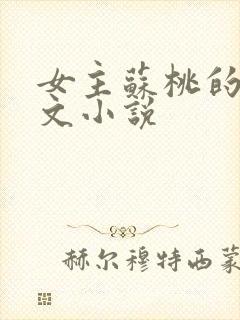 女主蘇桃的
文小說
赫尔穆特西蒙